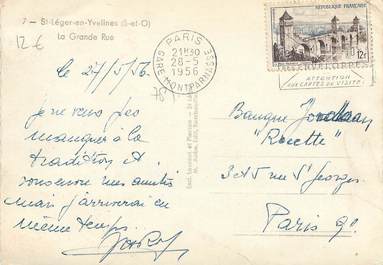 7 - St-Léger-en-Yvelines (S-et-O)
La Grande Rue
12 €
PARIS
21H30
28-5
1956
GARE MONTPARNASSE
REPUBLIQUE FRANÇAISE
12f
ATTENTION
AUX CARTES DE VISITE
le 27/5/56
je ne veux pas
manquer à la
tradition et
vous envoie mes amitiés
mais j'arriverai en
même temps.
Banque
"Rosette"
3 et 5 rue St Georges
Paris 9e